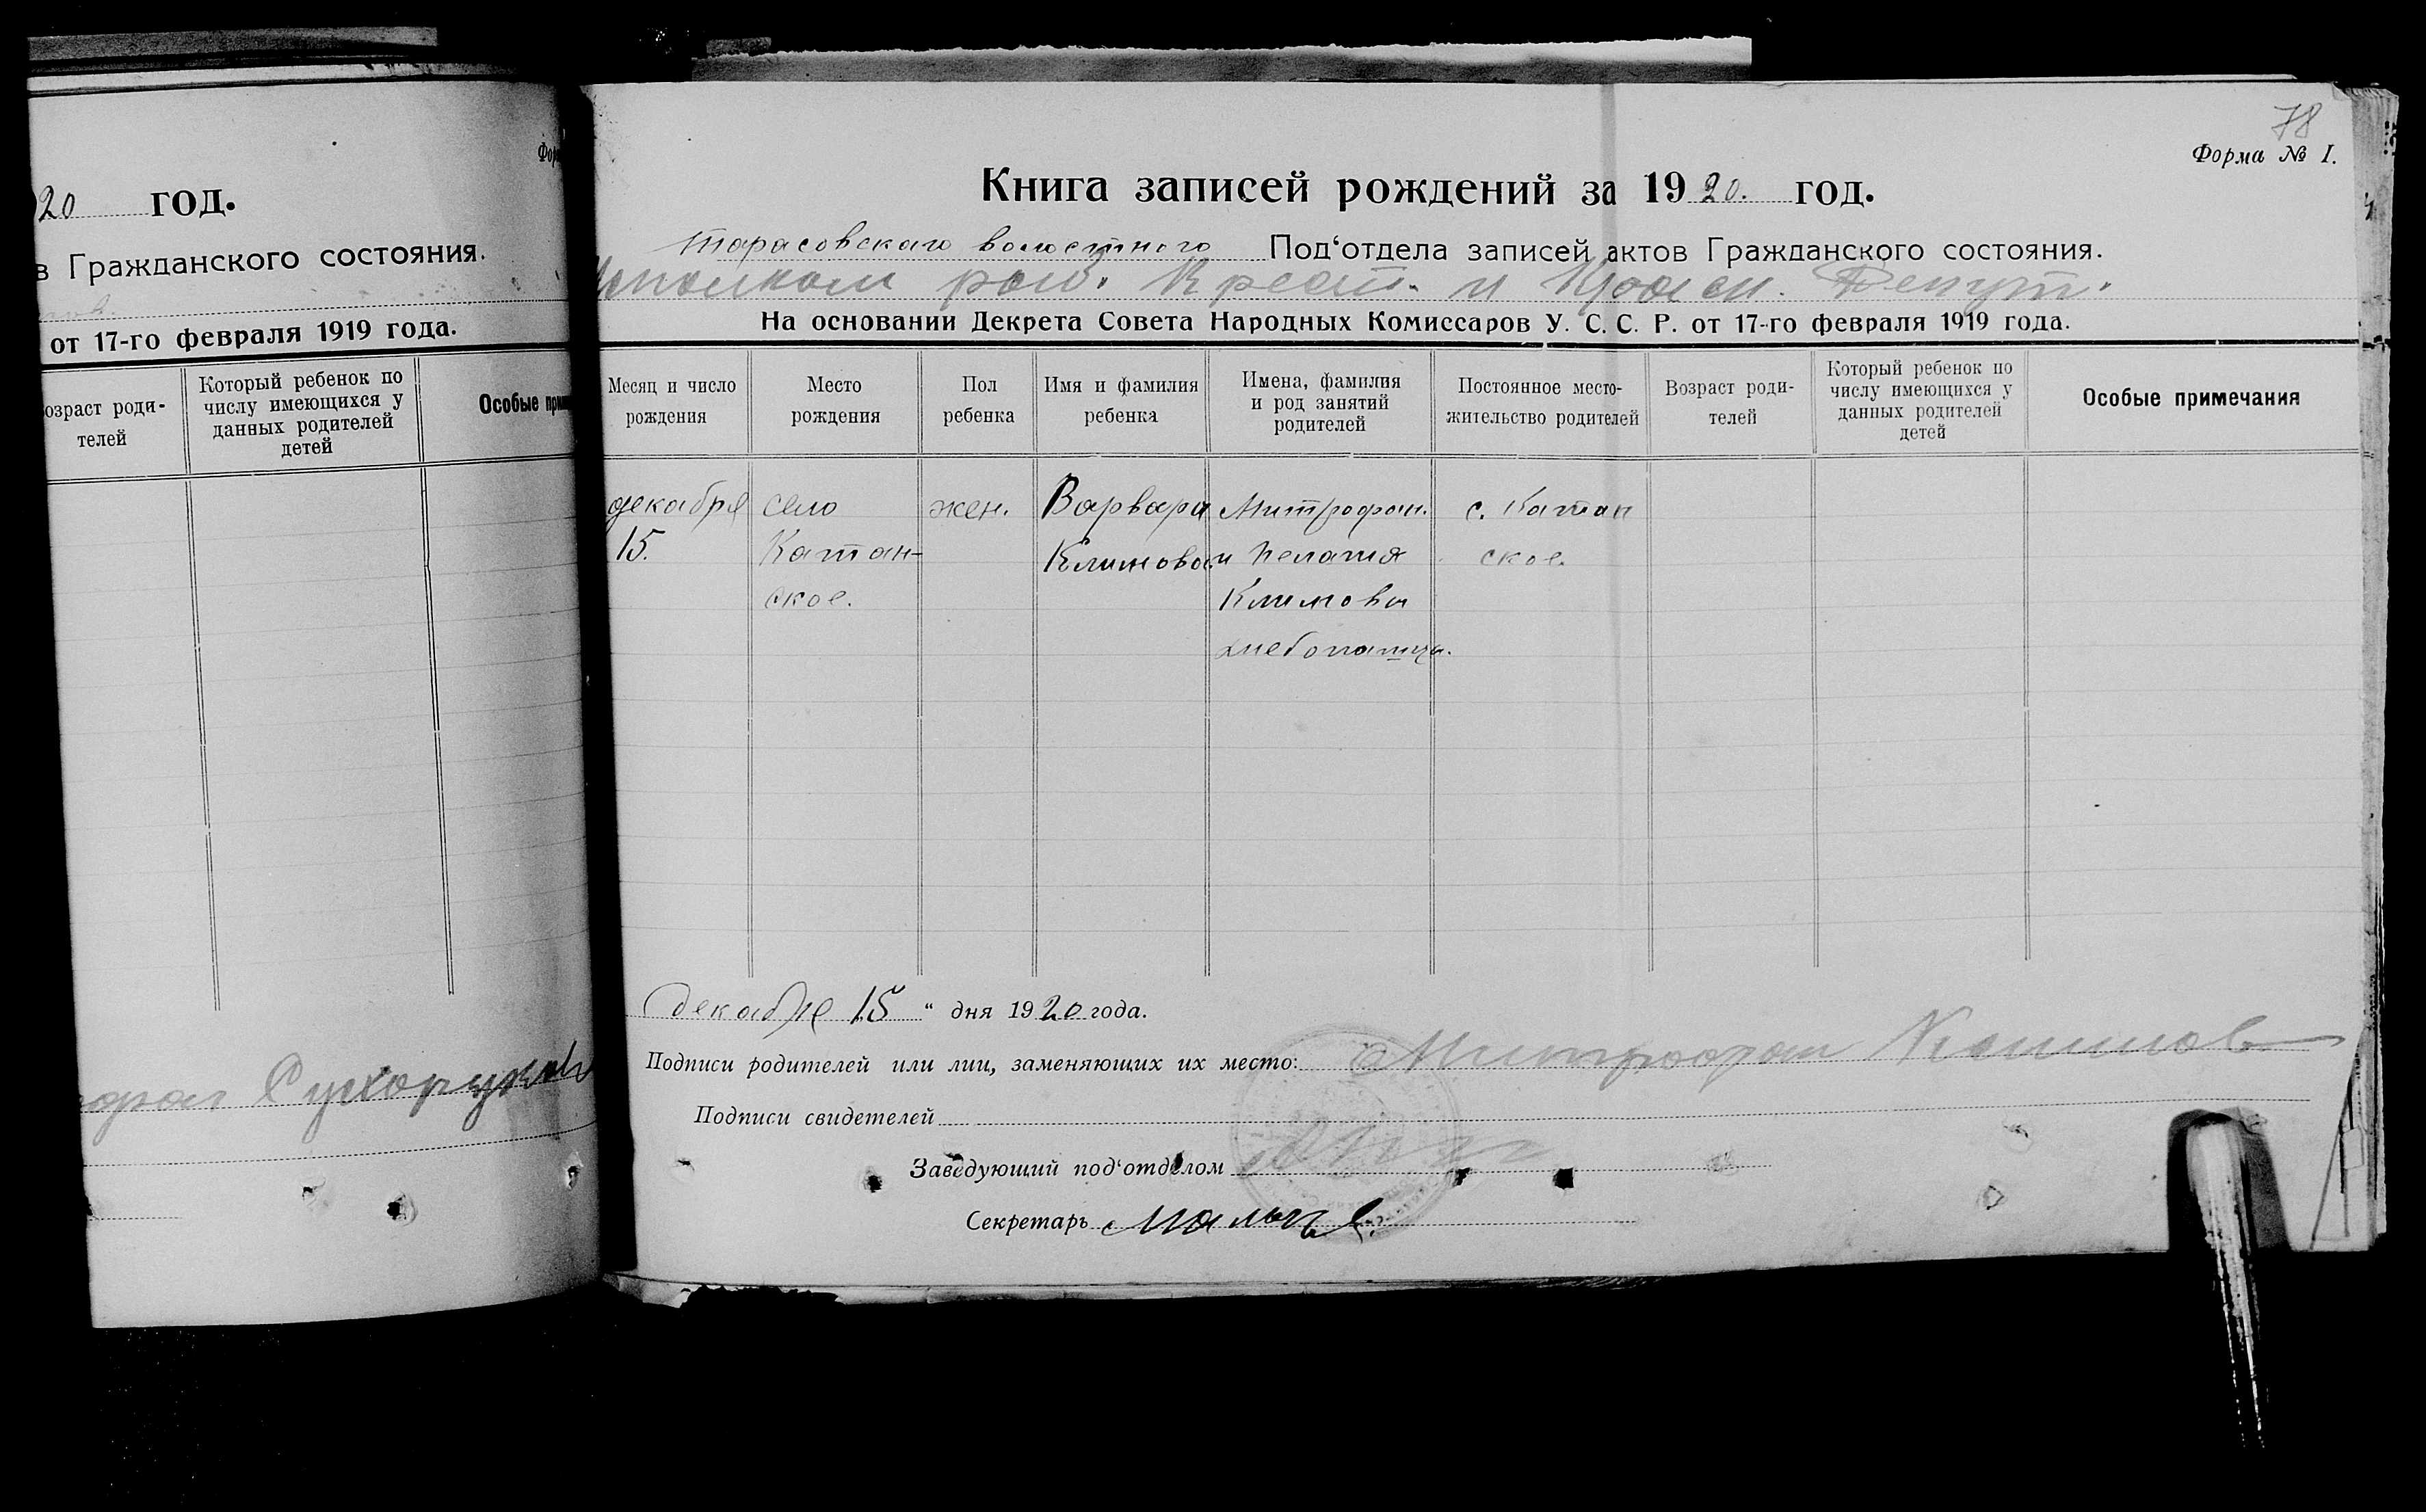 20 год.
в Гражданского состояния.
от 17-го февраля 1919 года.
озраст роди-
телей
Который ребенок по
числу имеющихся у
данных родителей
детей
Особые
Сухоруков
78
Форма № I.
Книга записей рождений за 1920. год.
Тарасовскаго волостного Под'отдела записей актов Гражданского состояния.
Исполком раб. Крест. и Красн. Депут.
На основании Декрета Совета Народных Комиссаров У. С. С. Р. от 17-го февраля 1919 года.
Месяц и число
рождения
Место
рождения
Пол
ребенка
Имя и фамилия
ребенка
Имена, фамилия
и род занятий
родителей
Постоянное место-
жительство родителей
Возраст роди-
телей
Который ребенок по
числу имеющихся у
данных родителей
детей
Особые примечания
декабря
15.
село
Катан-
ское.
жен.
Варвара
Климова
Митрофан.
и Пелагия
Климовы
хлебопашцы.
с. Катан
ское.
декабря 15 " дня 1920 года.
Подписи родителей или лиц, заменяющих их место: Митрофан Климов
Подписи свидетелей
Заведующий под'отделом
Секретарь